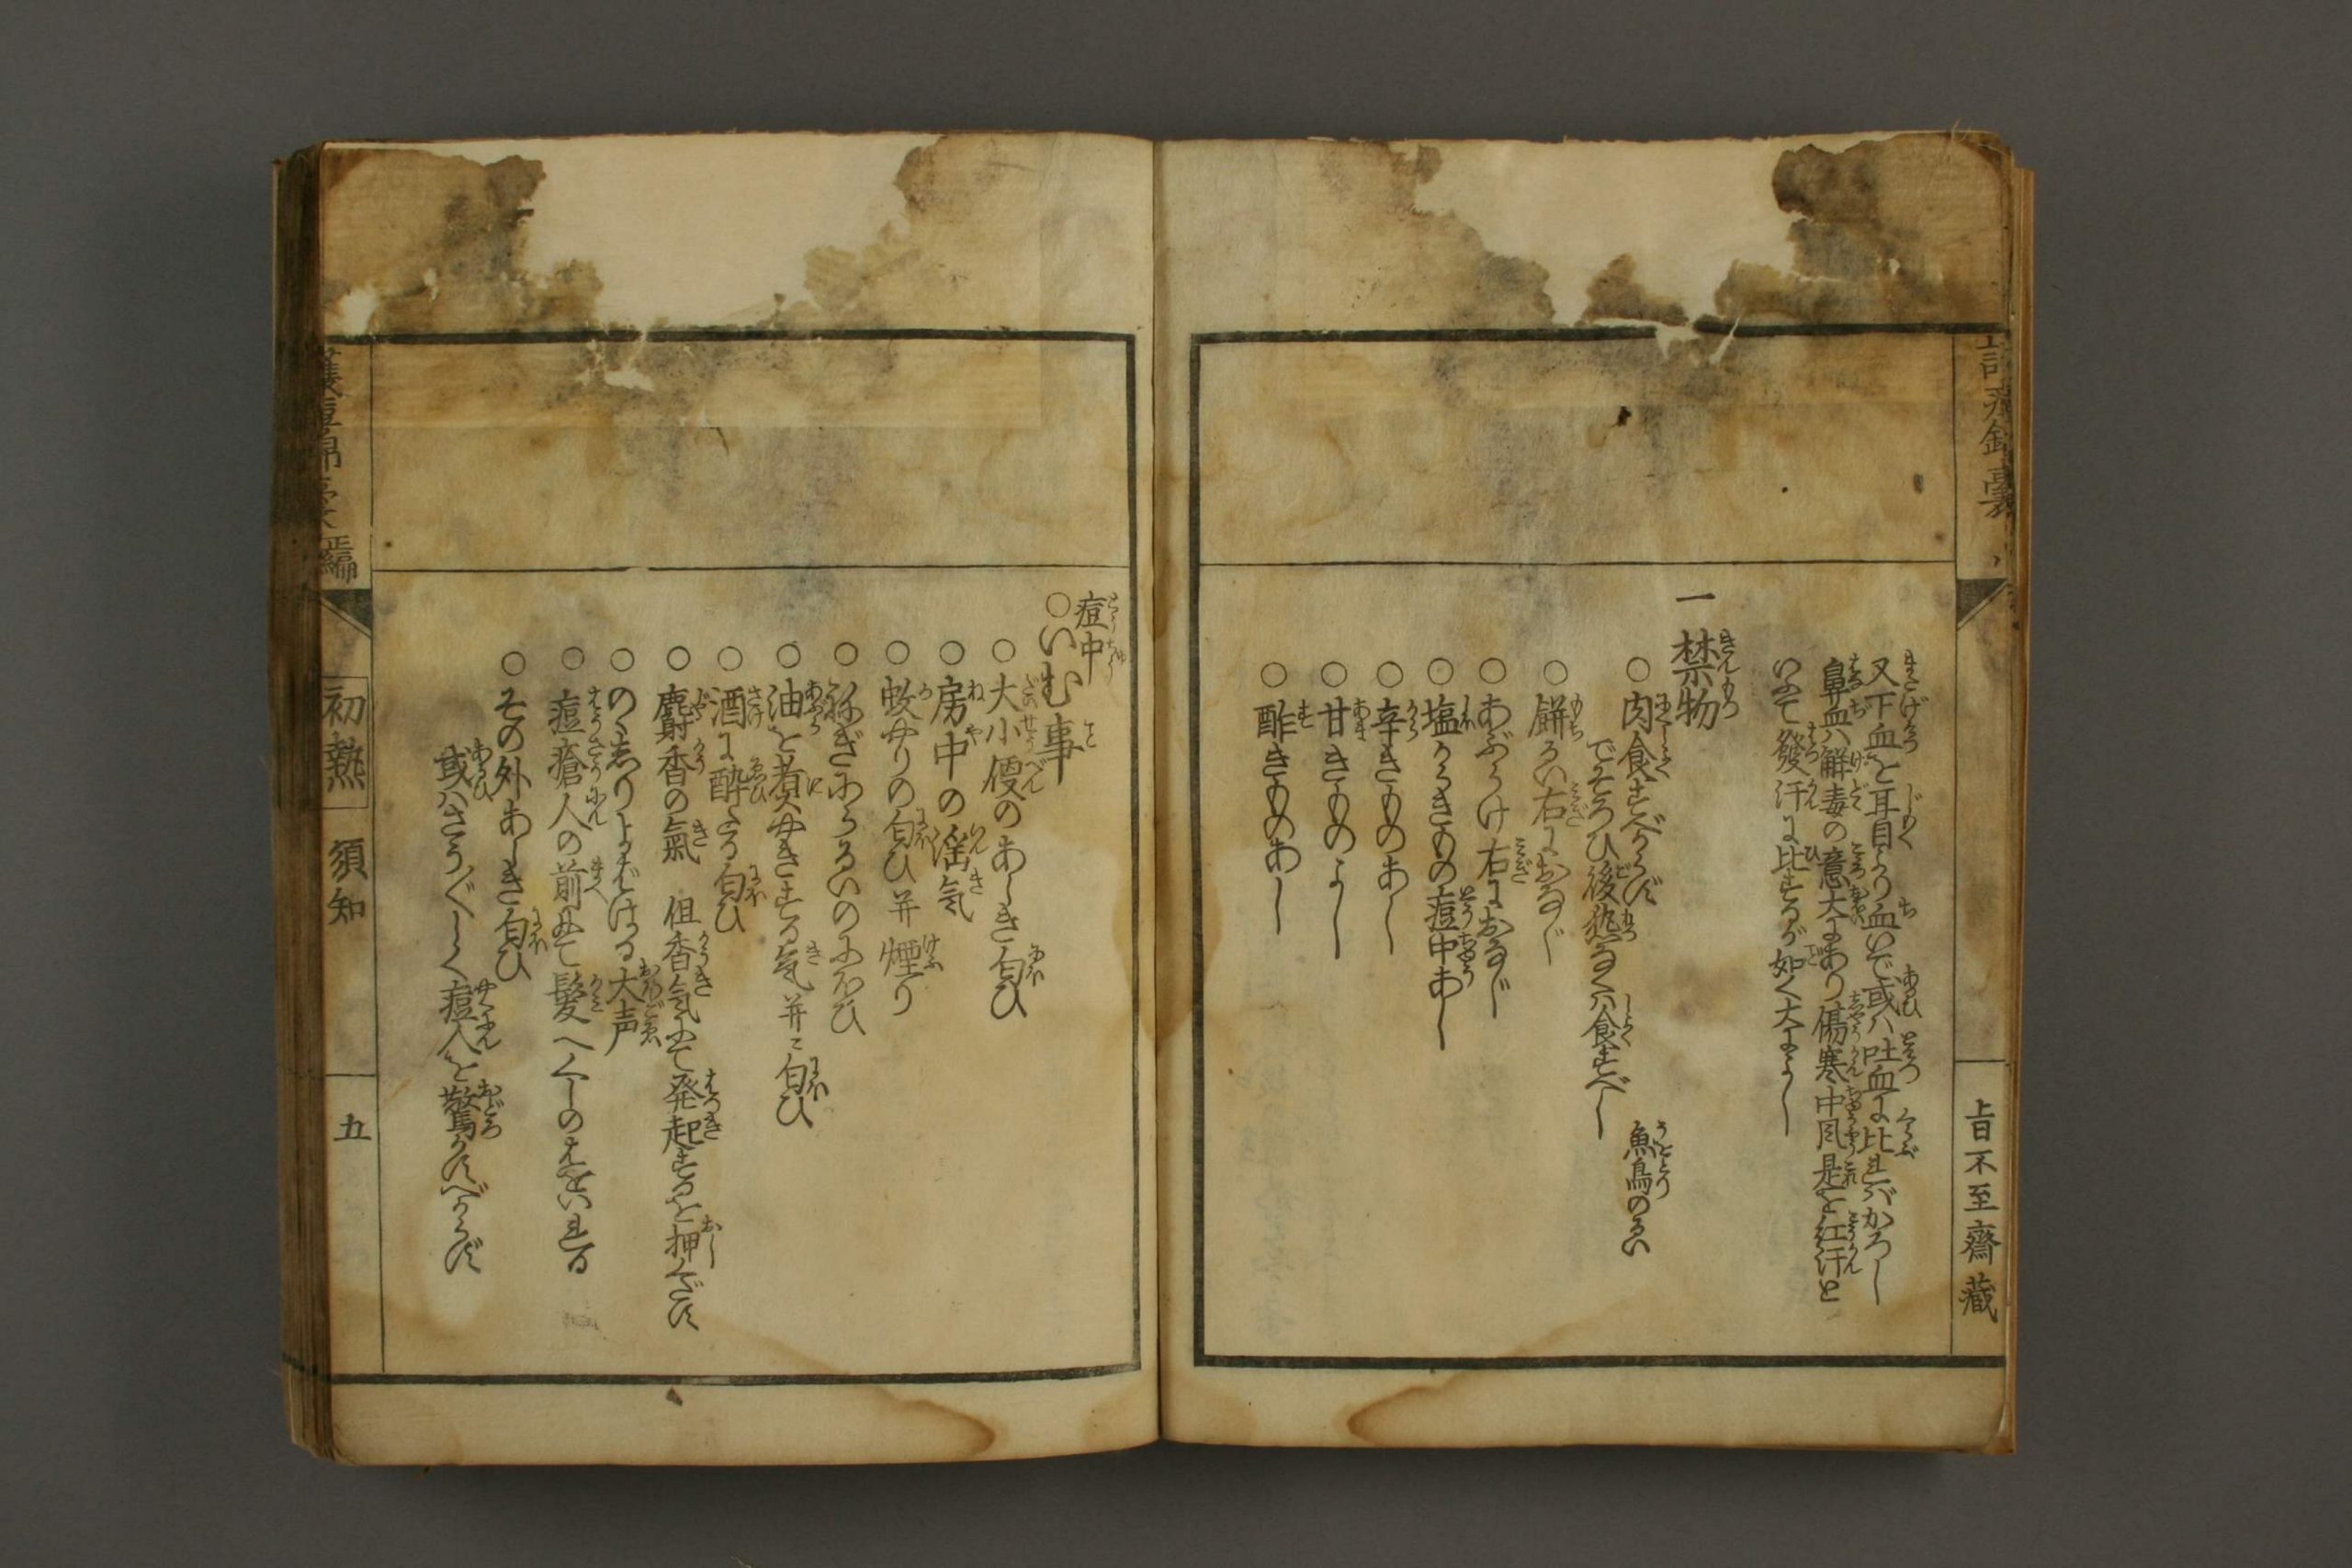 又下血と耳目より血いで或ハ吐血に比れバかろし
鼻血ハ解毒の意大にあり傷寒中風是を紅汗と
いふて發汗に比するが如く大によし
一 禁物
○ 肉食すべからず 魚鳥のるい
でそろひ後熱なくハ食すべし
○ 餅るい右におなじ
○ あぶらけ右におなじ
○ 塩からきもの痘中あし
○ 辛きものあし
○ 甘きものよし
○ 酢きものあし
上日不至齋藏
痘中
○いむ事
○ 大小便のあしき匂ひ
○ 房中の淫気
○ 蚊やりの匂ひ并煙り
○ ねぎにらるいのにほひ
○ 油を煮やきする気并ニ匂ひ
○ 酒に酔たる匂ひ
○ 麝香の氣 但香気にて発起するを押くだす
○ のゝしりよばはる大声
○ 痘瘡人の前にて髪へくしのはをいれる
○ その外あしき匂ひ
或ハさう〴〵しく痘人を驚かすべからず
正編
初熱
須知
五